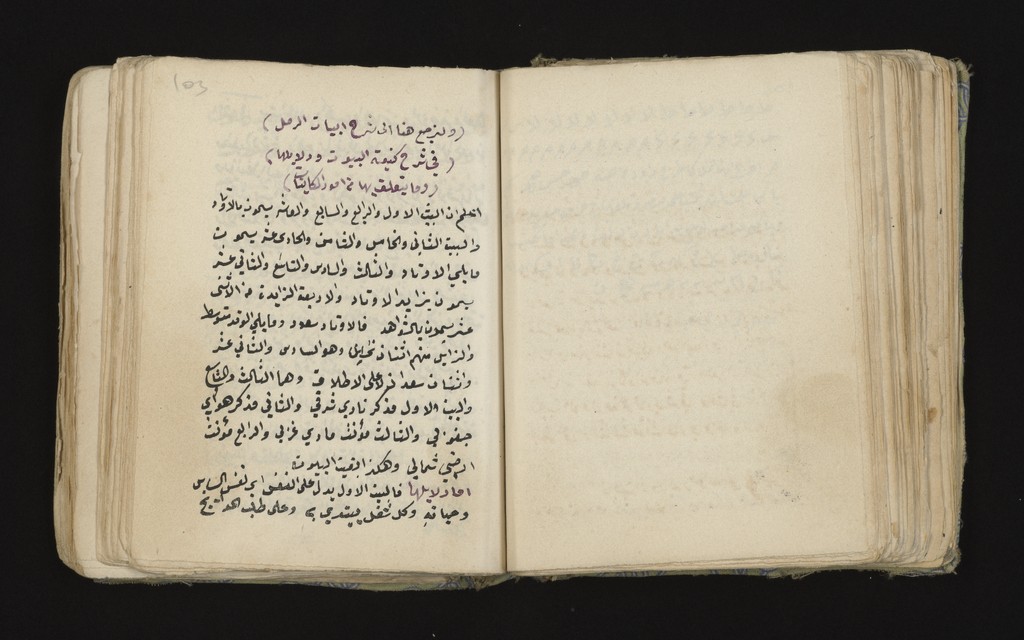 103
(ولنرجع هنا الى شرح ابيات الرمل)
(في شرح كيفية البيوت ودلايلها)
(وما يتعلق بها من امور الكاينات)
اعلم ان البيت الاول والرابع والسابع والعاشر يسمون بالاوتاد
والبيت الثاني والخامس والثامن والحادي عشر يسمون
مايلي الاوتاد والثالث والسادس والتاسع والثاني عشر
يسمون بزايد الاوتاد والاربعة الزايدة عن الاثنى
عشر يسمون بالشواهد فالاوتاد سعود ومايلي الوتد متوسط
والزايل منهم اثنان نحيس وهو السادس والثاني عشر
واثنان سعدان على الاطلاق وهما الثالث والتاسع
والبيت الاول مذكر ناري شرقي والثاني مذكر هوايي
جنوبي والثالث مؤنث مايي غربي والرابع مؤنث
ارضي شمالي وهكذا بقيت البيوت
اما دلايلها فالبيت الاول يدل على النفس اي نفس السايل
وحياته وكل شغل يبتدي به وعلى طلب